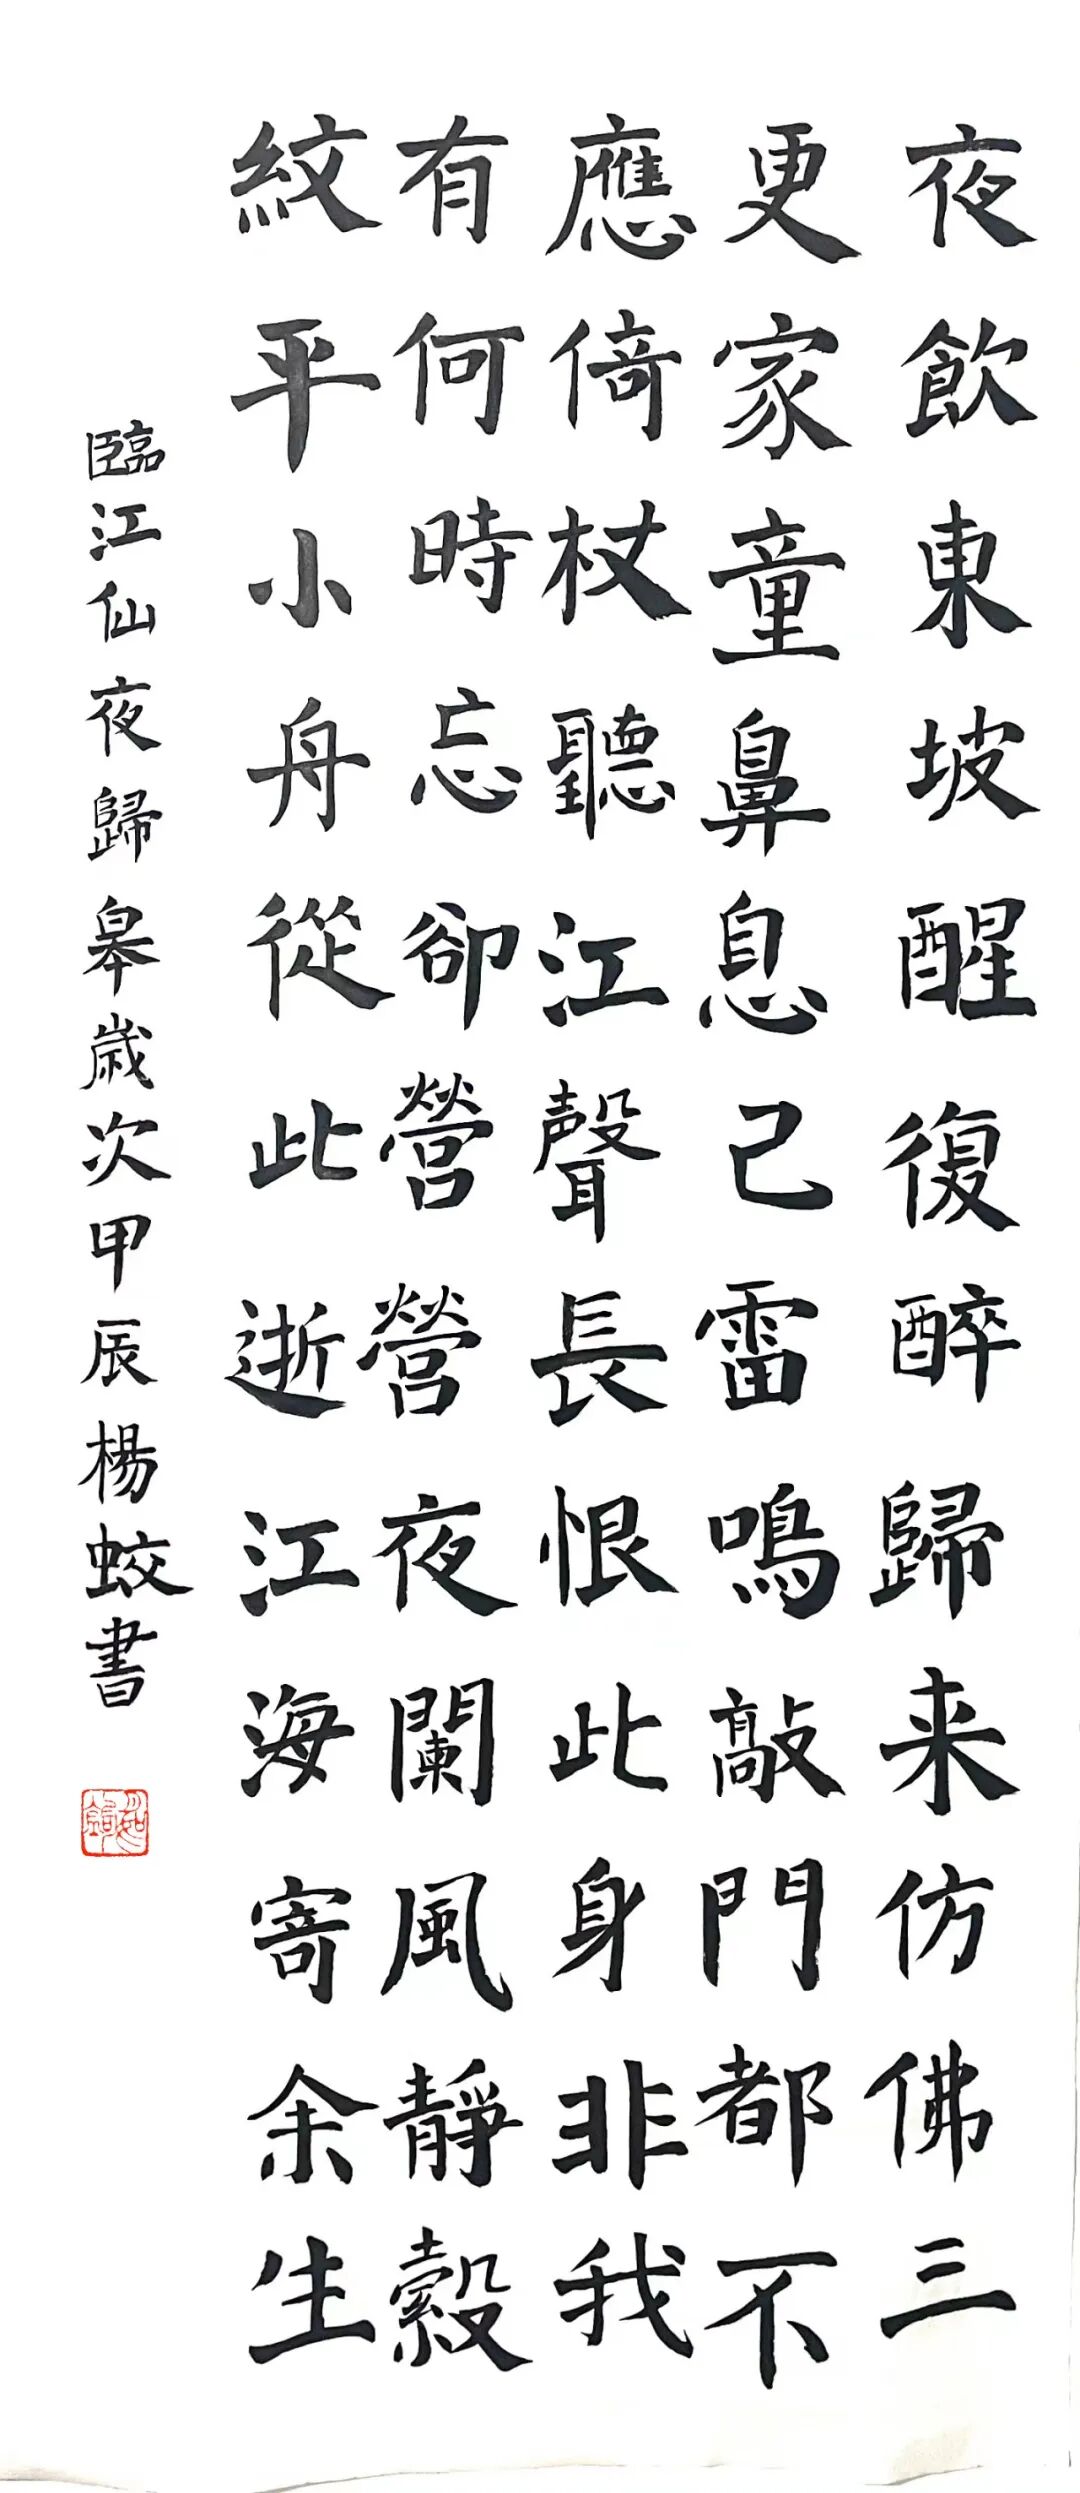 夜飲東坡醒復醉歸来仿佛三
更家童鼻息己雷鳴敲門都不
應倚杖聽江聲長恨此身非我
有何時忘卻營營夜闌風靜縠
紋平小舟從此逝江海寄余生
臨江仙夜歸皋歲次甲辰楊蛟書